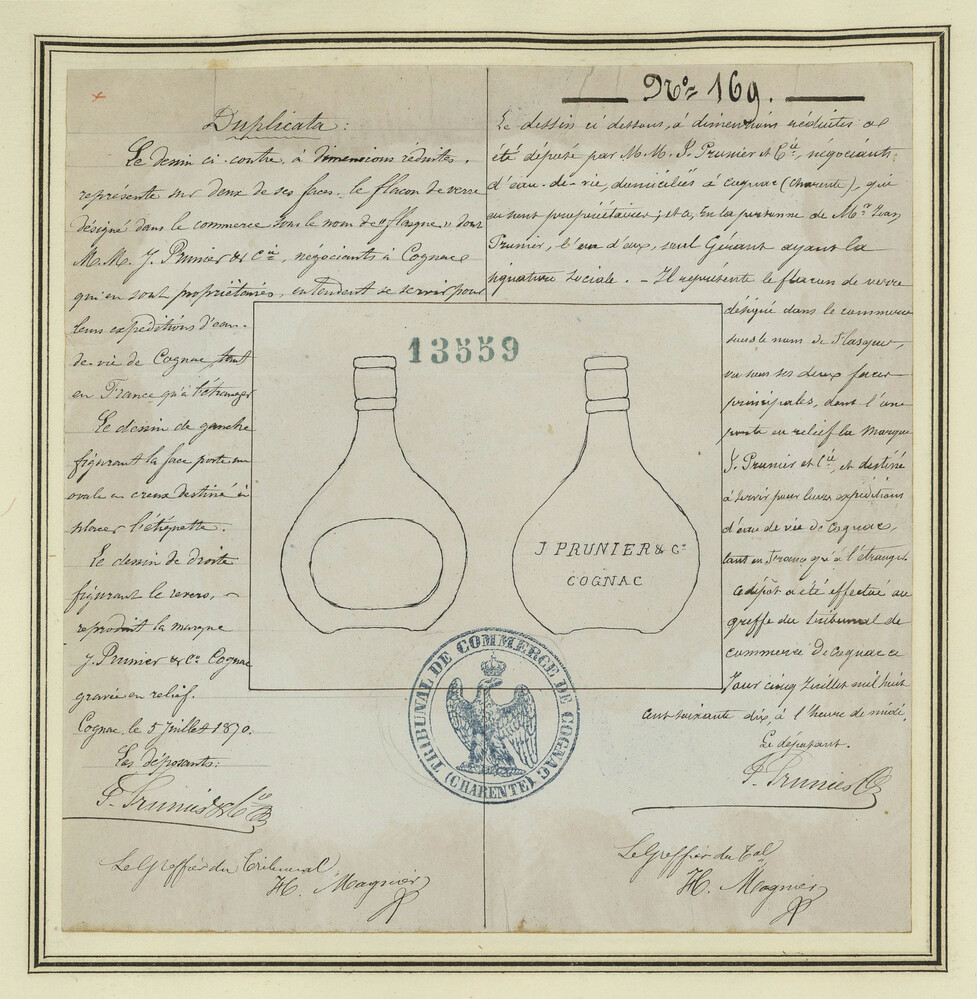 Duplicata :
Le dessin ci-contre, à dimensions réduites,
représente sur deux de ses faces, le flacon de verre
désigné dans le commerce sous le nom de "flasque" dont
M.M. J. Prunier & Cie, négociants à Cognac
qui en sont propriétaires, entendent se servir pour
leurs expéditions d'eau-
de-vie de Cognac tant
en France qu'à l'étranger
Le dessin de gauche
figurant la face porte un
ovale en creux destiné à
placer l'étiquette.
Le dessin de droite
figurant le revers,
reproduit la marque
J. Prunier & Co Cognac
gravée en relief.
Cognac, le 5 Juillet 1870.
Les déposants:
J. Prunier & Cie
Le Greffier du Tribunal
H. Magnier
No 169.
Le dessin ci dessous, à dimensions réduites a
été déposé par M.M. J. Prunier et Cie, négociants
d'eau-de-vie, domiciliés à Cognac (Charente), qui
en sont propriétaires; et a, en la personne de Mr Jean
Prunier, l'un d'eux, seul Gérant ayant la
signature sociale. - Il représente le flacon de verre
désigné dans le commerce
sous le nom de Flasque,
vu sous ses deux faces
principales, dont l'une
porte en relief la Marque
J. Prunier et Cie, et destiné
à servir pour leurs expéditions
d'eau de vie de Cognac,
tant en France qu'à l'étranger
Ce dépôt a été effectué au
greffe du tribunal de
commerce de Cognac ce
Jour cinq Juillet mil huit
cent soixante dix, à l'heure de midi.
Le déposant.
J. Prunier
Le Greffier du Tal
H. Magnier
13559
J PRUNIER & Co
COGNAC
TRIBUNAL DE COMMERCE DE COGNAC
(CHARENTE)